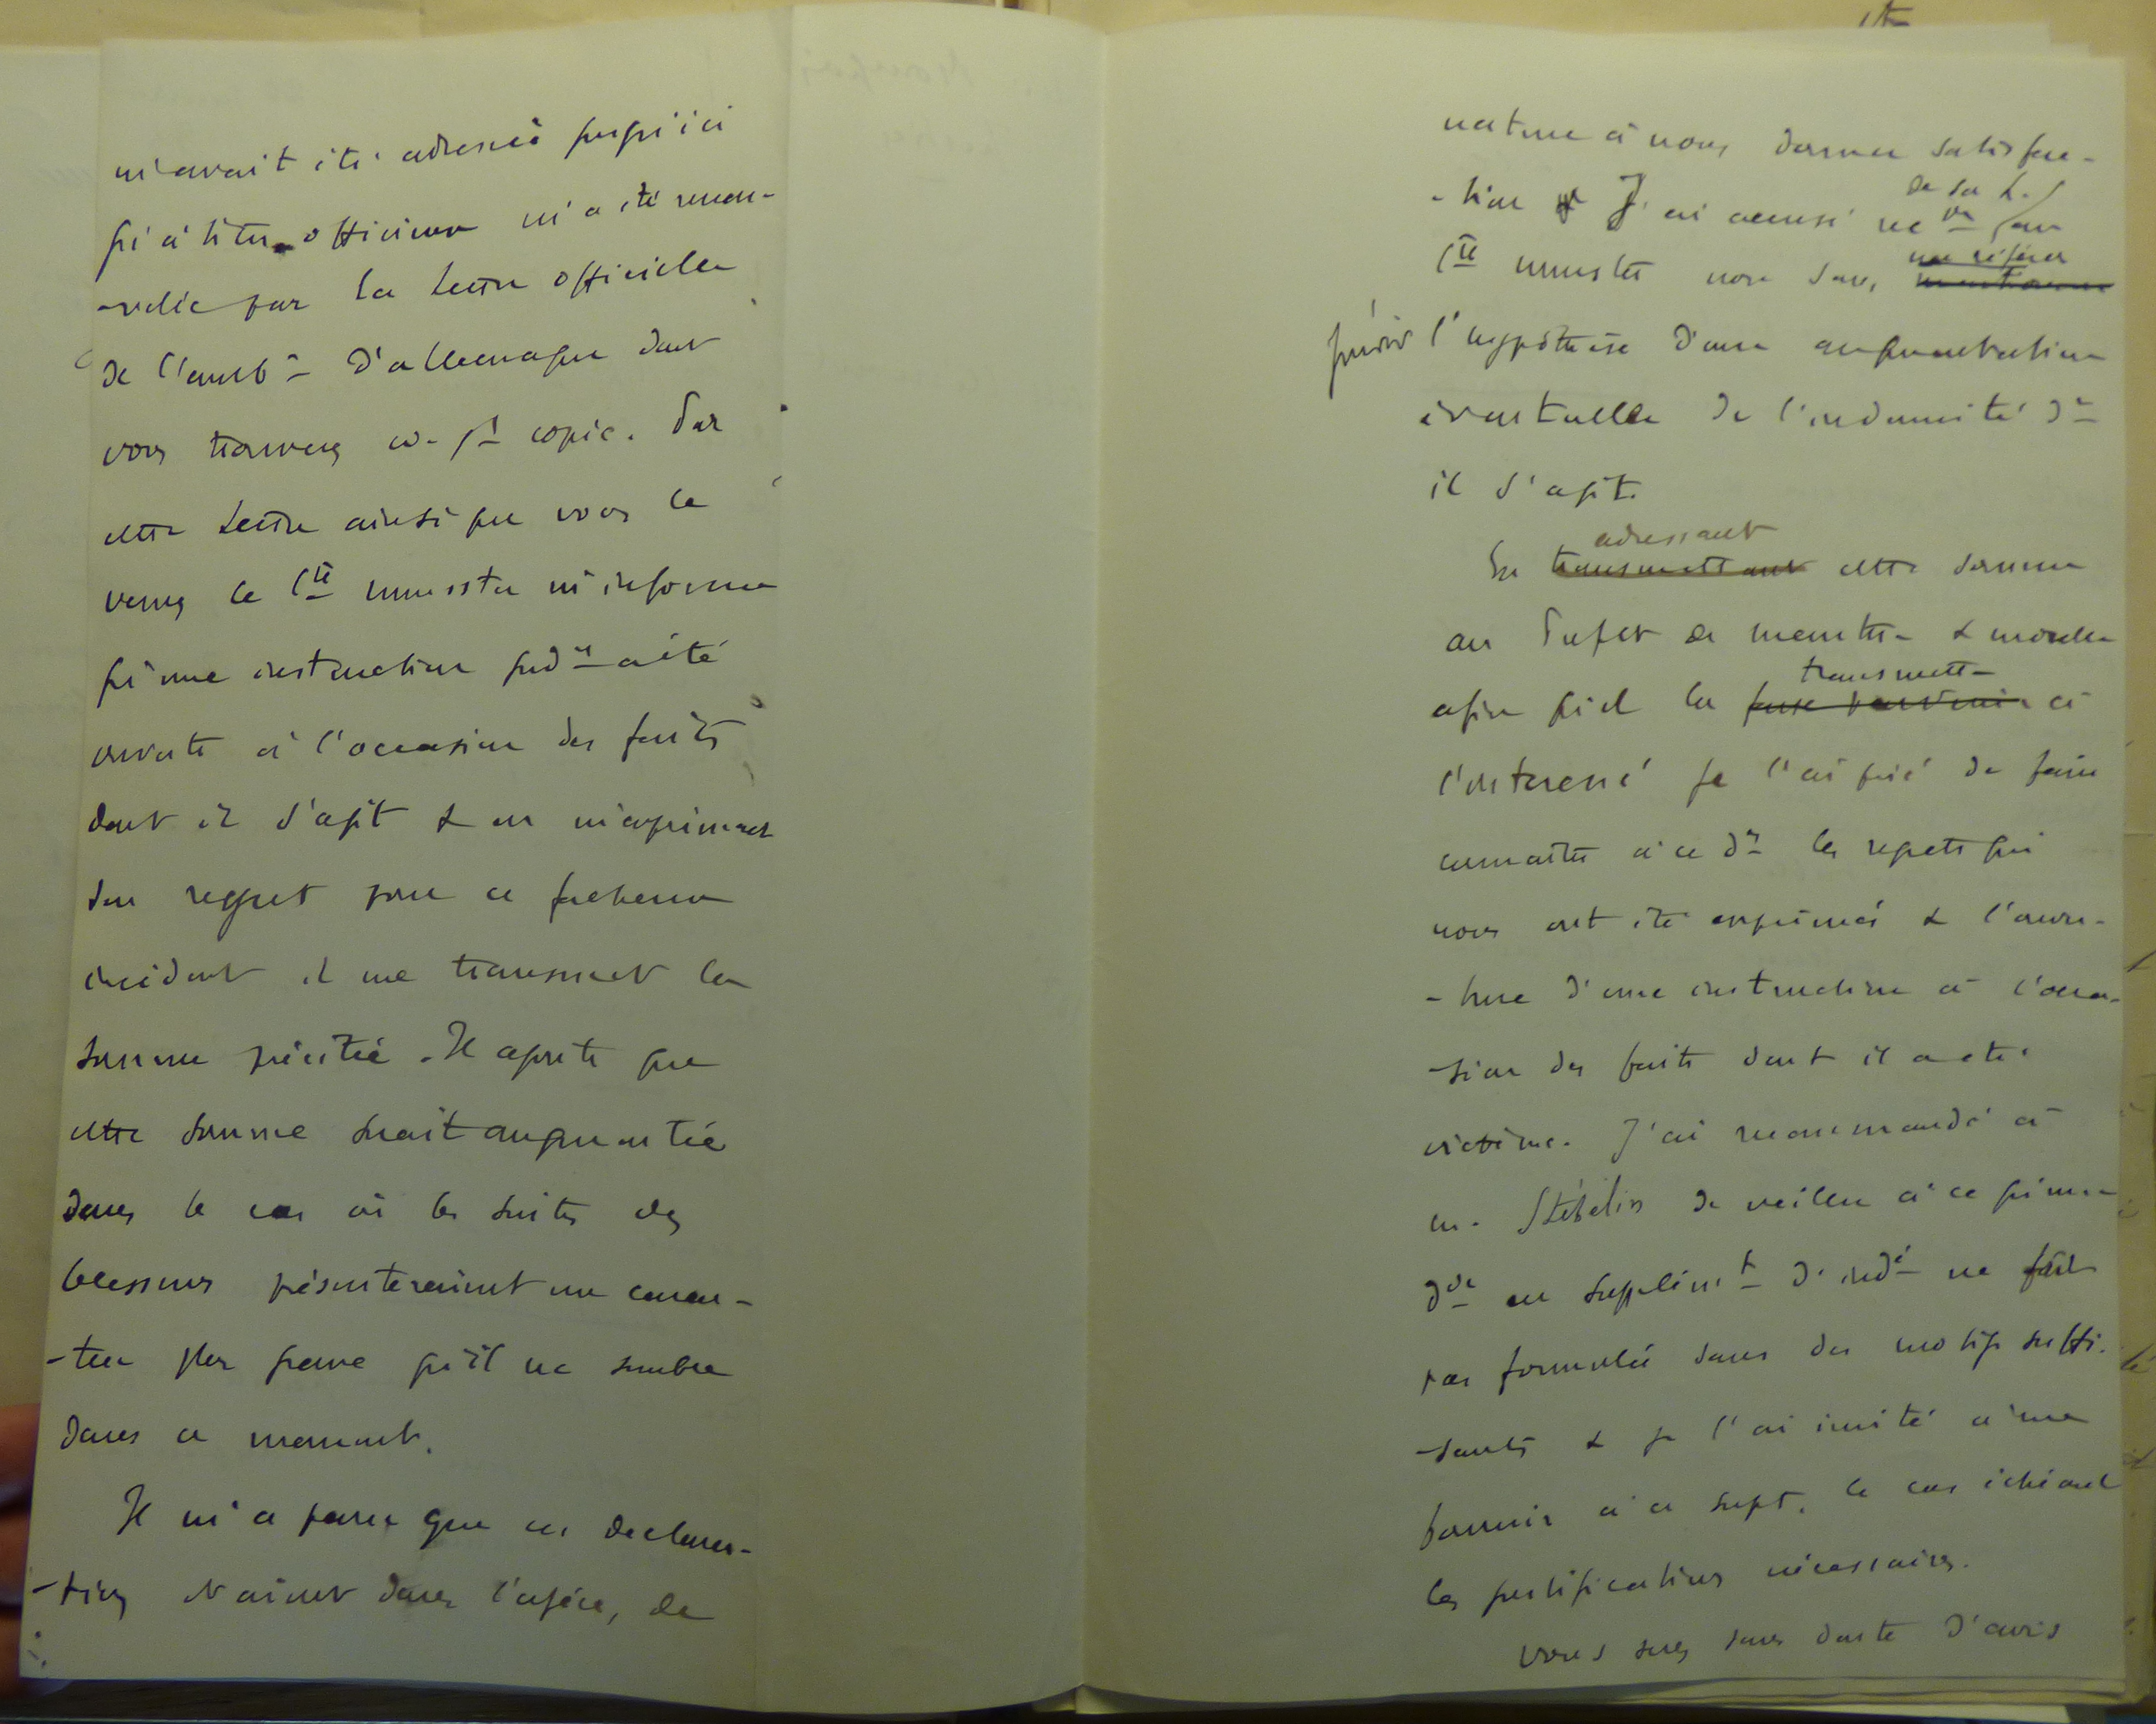 m'avait été adressée jusqu'ici
qu'à titre officieux m'a été renou-
-velée par la lettre officielle
de l'amb^de d'allemagne dont
vous trouverez ci-j^t copie. Par
cette lettre ainsi que vous le
verrez le C^te munster m'informe
qu'une instruction jud^re a été
ouverte à l'occasion des faits
dont il s'agit & en m'exprimant
son regret pour ce facheux
incident il me transmet la
somme précitée. Il ajoute que
cette somme serait augmentée
dans le cas où les suites des
blessures présenteraient un carac-
-tère plus grave qu'il ne semble
dans ce moment.
Il m'a paru que ces déclara-
-tions étaient dans l'espèce, de
nature à nous donner satisfac-
-tion J'ai accusé rec^on de sa L. au
C^te munster non sans ~~mentionner~~ me référer
préciser l'hypothèse d'une augmentation
éventuelle de l'indemnité d^t
il s'agit.
En ~~transmettant~~ adressant cette somme
au Préfet de meurthe & moselle
afin qu'il la ~~fasse parvenir~~ transmette à
l'intéressé je l'ai prié de faire
connaître à ce d^er les regrets qui
nous ont été exprimés & l'ouver-
-ture d'une instruction à l'occa-
-sion des faits dont il a été
victime. J'ai recommandé à
m. Stéhelin de veiller à ce qu'une
d^de en supplém^t d'ind^é ne fût
pas formulée sans des motifs suffi-
-sants & je l'ai invité à me
fournir à ce sujet, le cas échéant
les justifications nécessaires.
vous serez sans doute d'avis